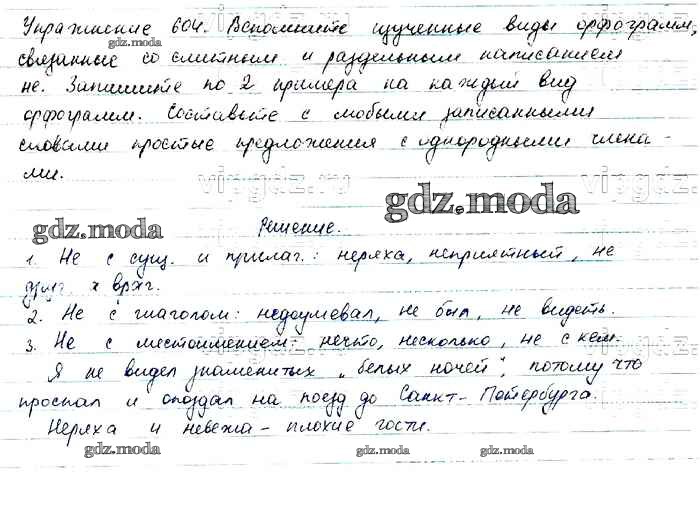 Упражнение 604. Вспомните изученные виды орфограмм,
gdz.moda
связанные со слитным и раздельным написанием
не. Запишите по 2 примера на каждый вид
орфограмм. Составьте с любыми записанными
словами простые предложения с однородными члена-
ми.
vipgdz.ru
vipgdz.ru
gdz.moda
gdz.moda
Решение.
1. Не с сущ. и прилаг.: неряха, неприятный, не
друг, а враг.
2. Не с глаголом: недоумевал, не был, не видеть.
3. Не с местоимением: нечто, несколько, не с кем.
Я не видел знаменитых „белых ночей", потому что
проспал и опоздал на поезд до Санкт-Петербурга.
Неряха и невежа - плохие гости.
gdz.moda
gdz.moda
gdz.moda